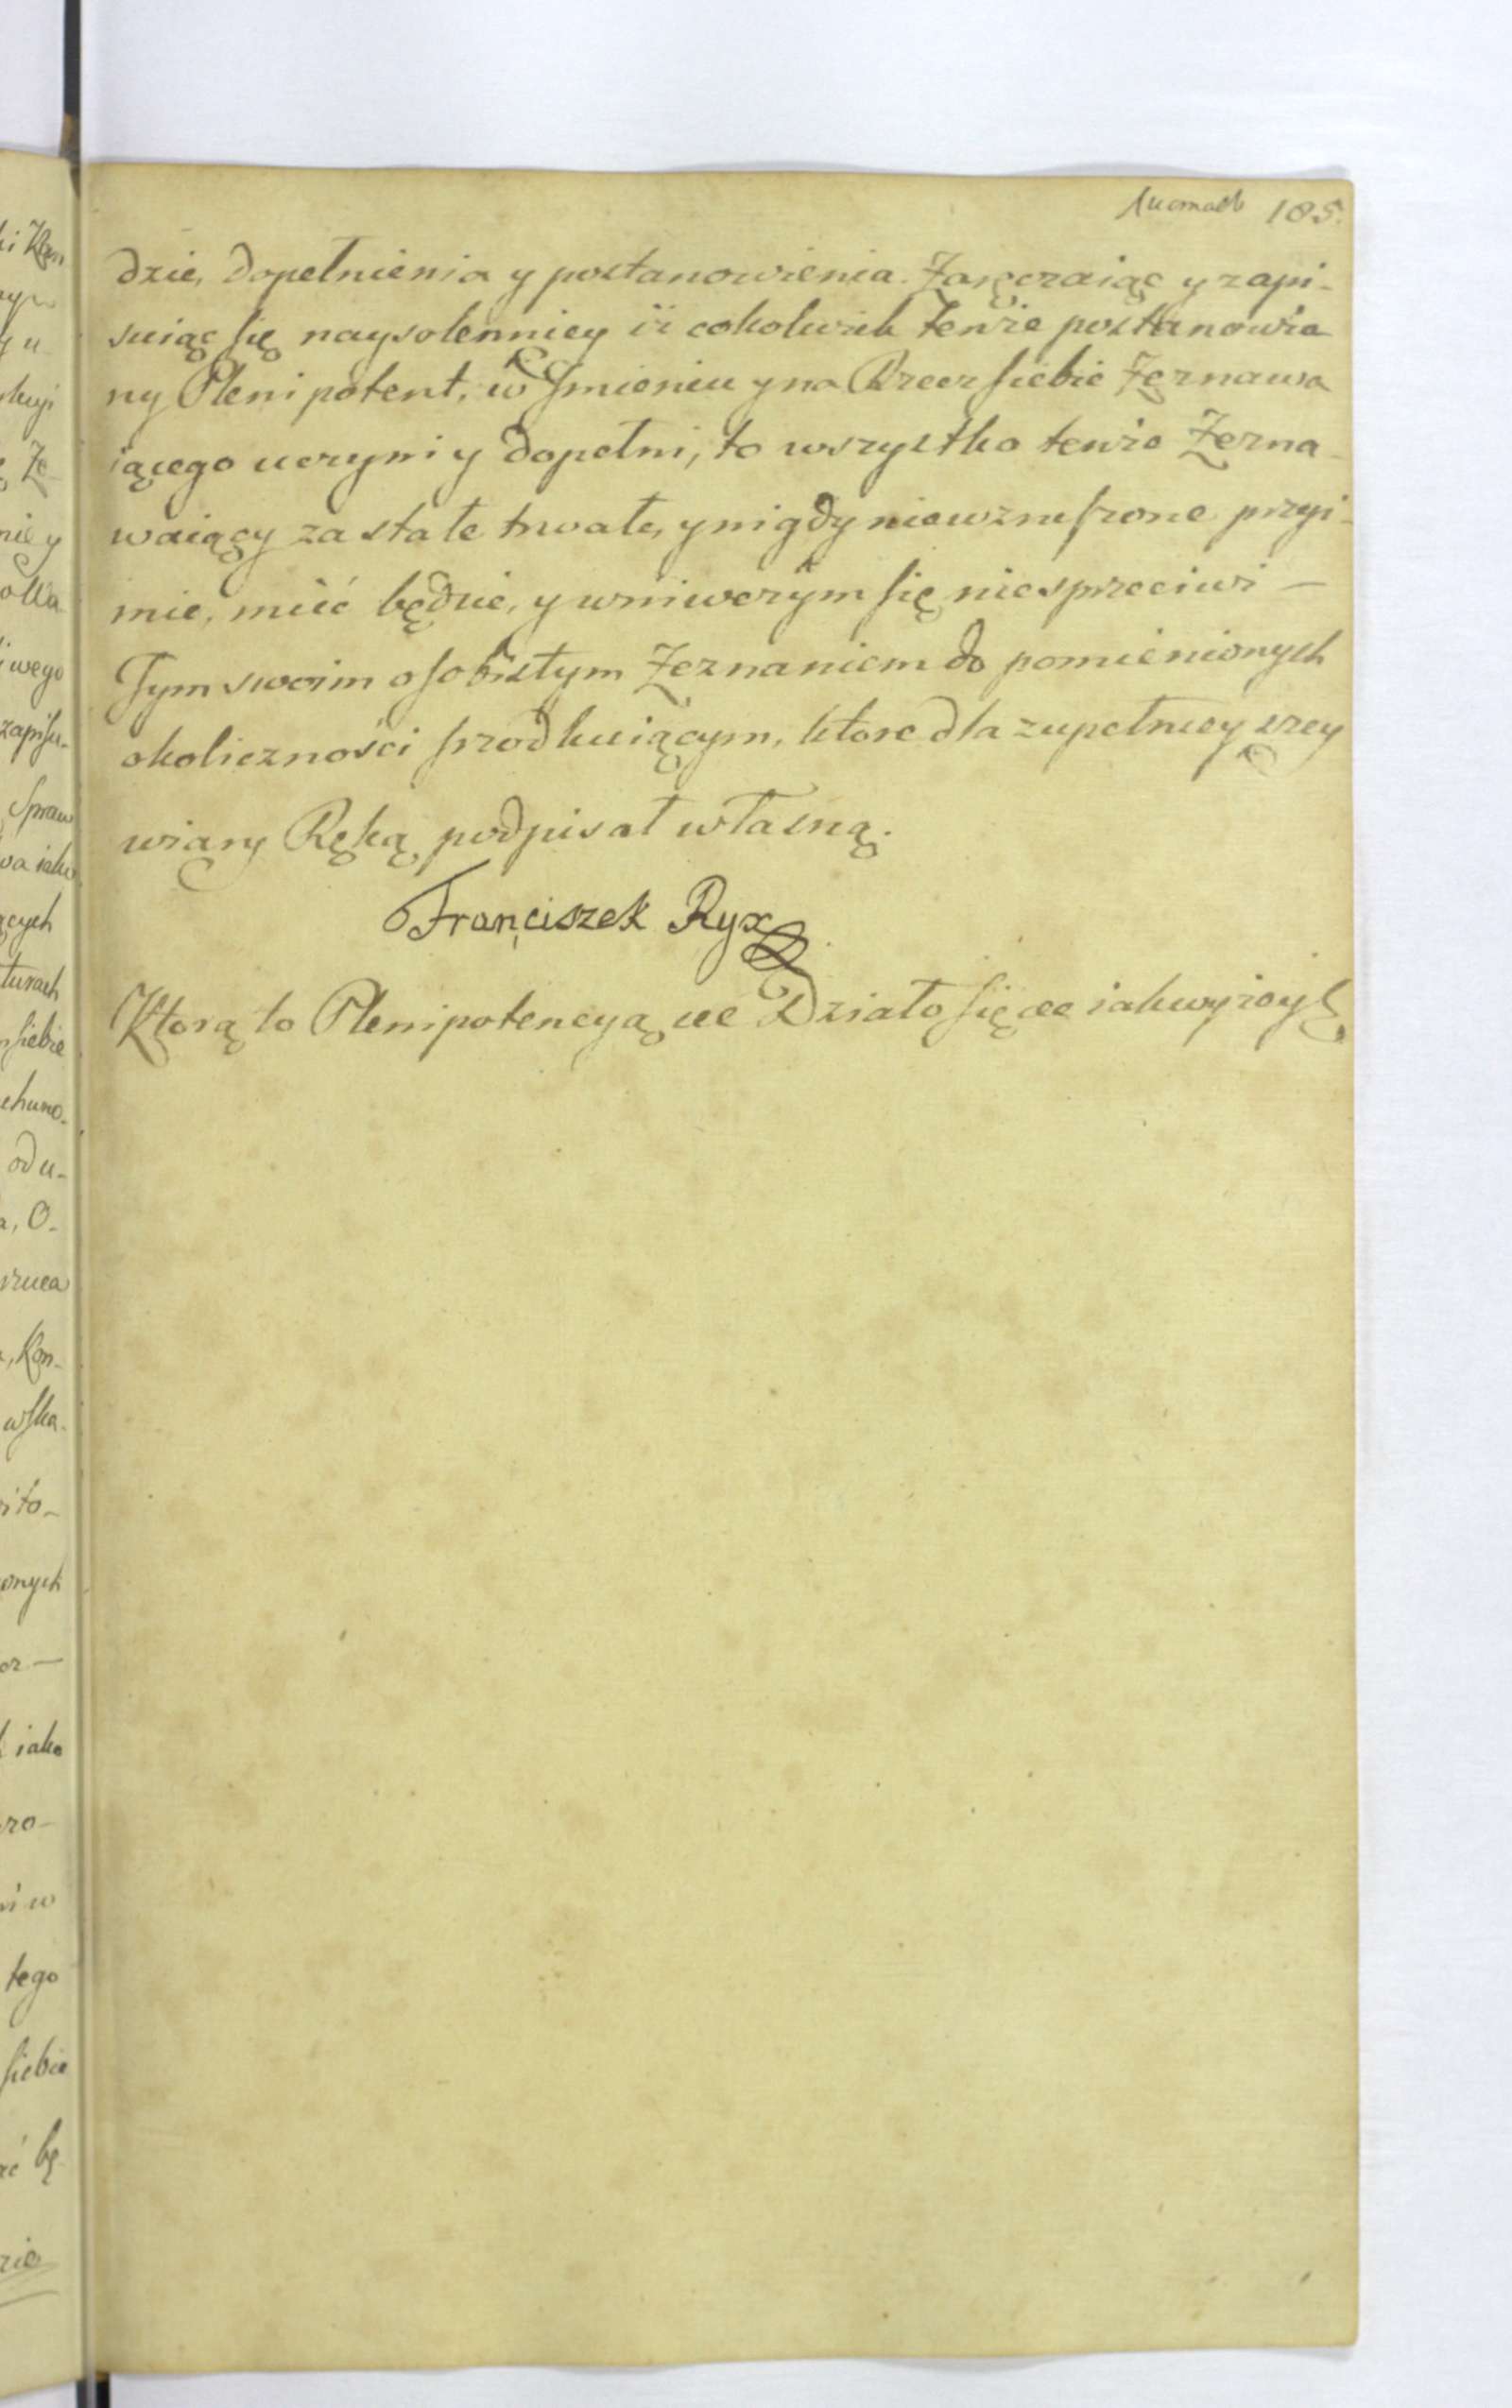 Листовъ 185.
dzie, dopełnienia y postanowienia. Zaręczaiąc y zapi-
suiąc się naysolenniey iż cokolwiek tenże postanowio
ny Plenipotent, w Jmieniu y na Rzecz siebie Zeznawa
iącego uczyni y dopełni, to wszystko tenże Zezna-
waiący za stałe trwałe, y nigdy niewzruszone przyi-
mie, mieć będzie, y wniwczym się niesprzeciwi —
Tym swoim osobistym Zeznaniem do pomienionych
okoliczności srodkuiącym, ktore dla zupełney wiary
wiary Ręką podpisał własną.
Franciszek Ryx
Ktorą to Plenipotencyą etc Działo się etc iak wyżey
i Kom
y u
Ze
nie y
wego
zapisu-
Spraw
wa iako
ących
turach
siebie
od u-
a, O-
, Kon-
iako
tego
siebie
bę